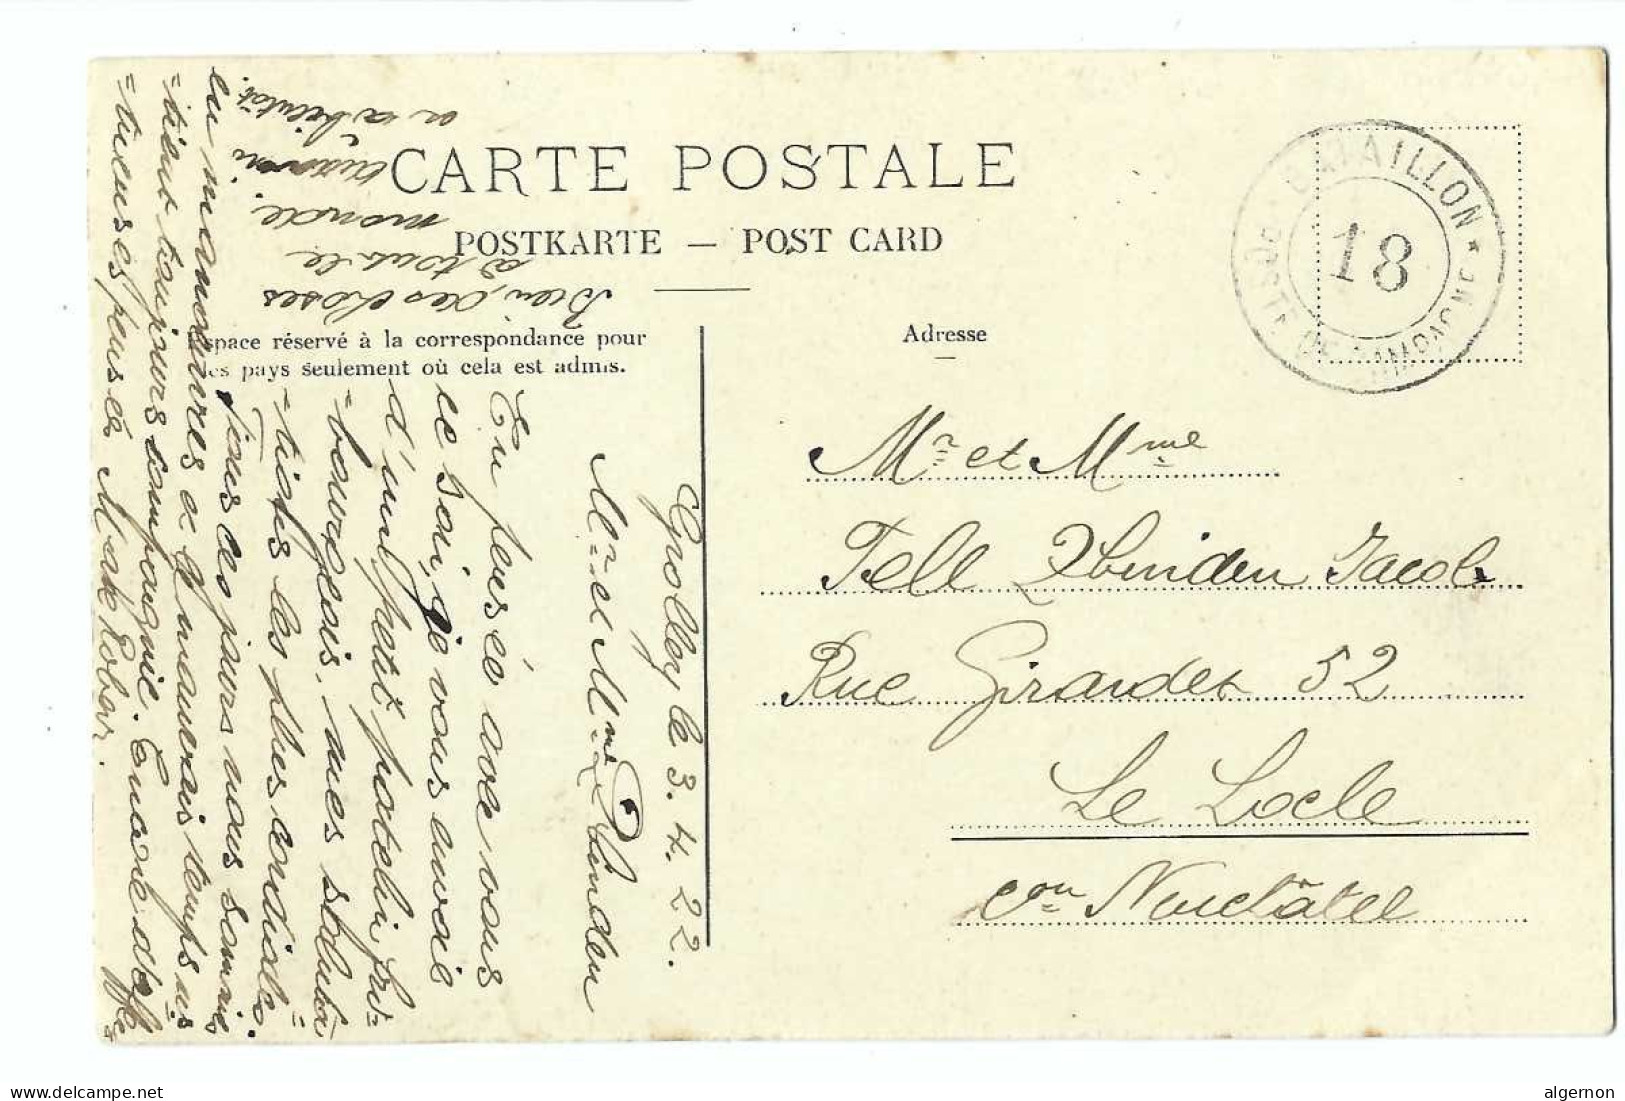 CARTE POSTALE
POSTKARTE — POST CARD
Espace réservé à la correspondance pour
les pays seulement où cela est admis.
Adresse
BATAILLON
18
POSTE DE CAMPAGNE
Mr et Mme
Tell Zbinden Jacot
Rue Girardet 52
Le Locle
Con Neuchâtel
Grolley le 3.4.22.
Mr et Mme Zbinden
En pensée avec vous
ce soir, je vous envoie
d'un petit patelin fri-
-bourgeois, mes saluta
-tions les plus cordiales.
Tous ces jours nous sommes
en manœuvres et q mauvais temps ns
-tient toujours compagnie. Encore affec
-tueuses pensées
Bien des choses
à tous le
monde.
et à bientôt.
www.delcampe.net
algernon